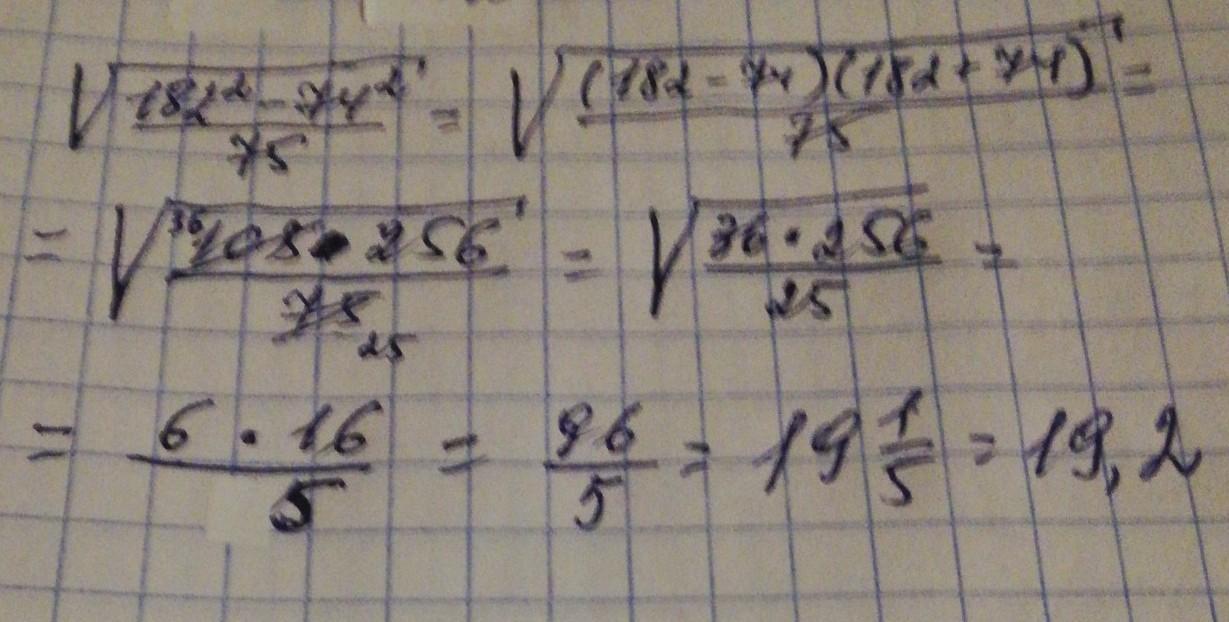 √(182² - 74²)/75 = √(182 - 74)(182 + 74)/75 =
= √36 108 · 256/75 25 = √36 · 256/25 =
= 6 · 16/5 = 96/5 = 19 1/5 = 19,2